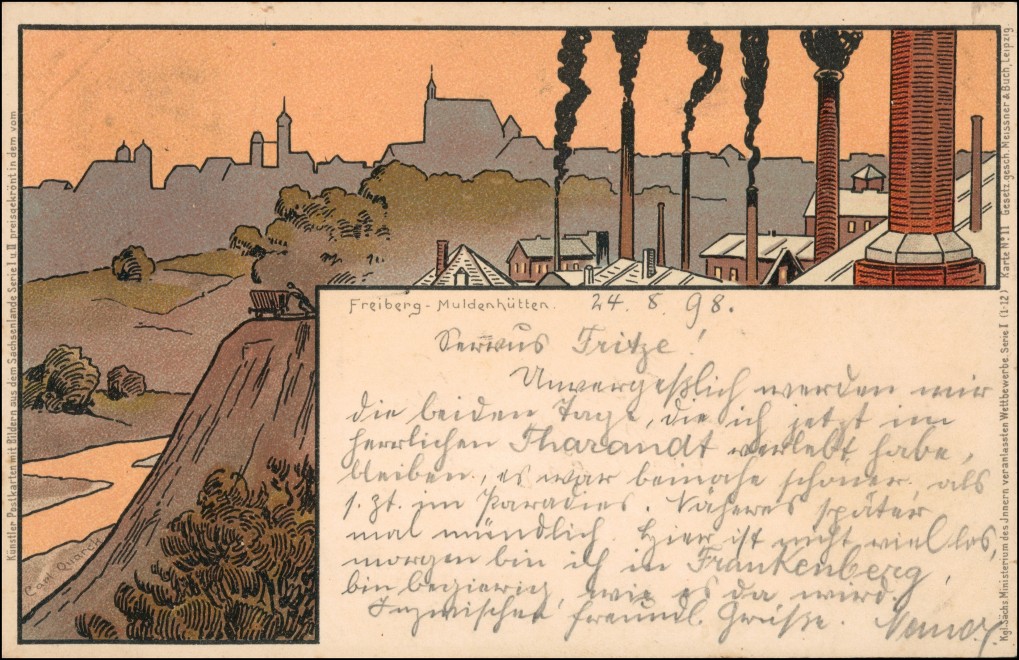 Künstler Postkarten mit Bildern aus dem Sachsenlande Serie I u. II preisgekrönt in dem vom
Kgl. Sächs. Ministerium des Jnnern veranlassten Wettbewerbe. Serie I (1-12) Karte No. 11 Gesetz. gesch. Meissner & Buch, Leipzig.
Carl Quarck
Freiberg - Muldenhütten. 24. 8. 98.
Servus Fritze!
Unvergeßlich werden mir
die beiden Tage, die ich jetzt im
herrlichen Tharandt verlebt habe,
bleiben, es war beinahe schöner als
s. Zt. im Paradies. Näheres später
mal mündlich. Hier ist nicht viel los,
morgen bin ich in Frankenberg,
bin begierig wie es da wird.
Inzwischen freundl. Grüße.